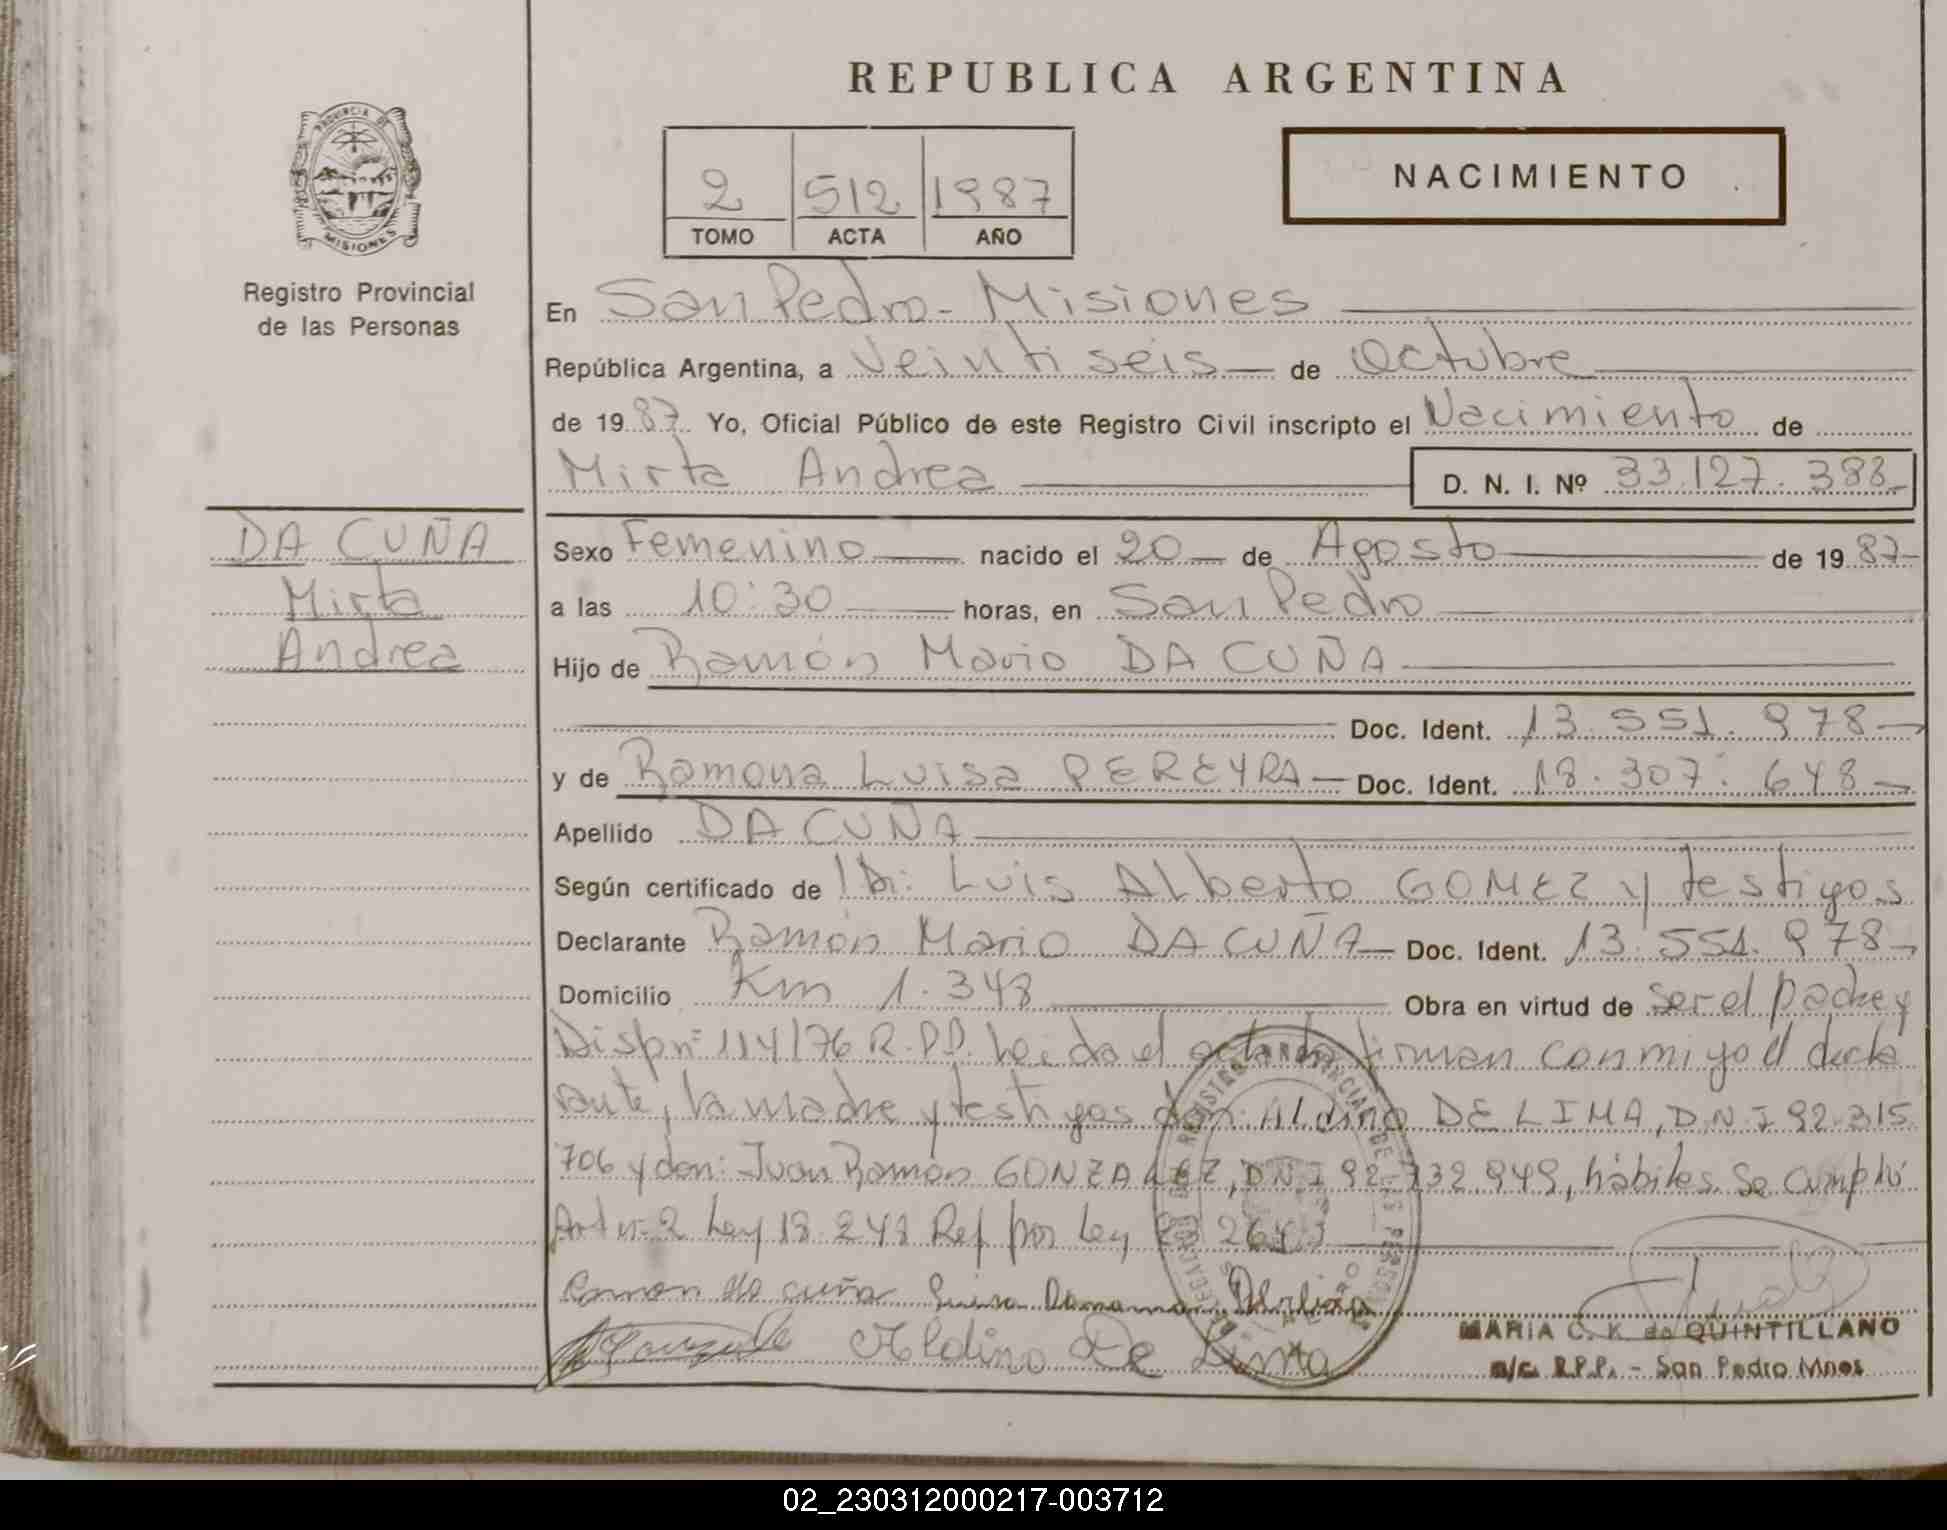 REPUBLICA ARGENTINA
PROVINCIA DE
MISIONES
Registro Provincial
de las Personas
2 512 1987
TOMO ACTA AÑO
NACIMIENTO
En San Pedro - Misiones
República Argentina, a veintiseis de Octubre
de 1987. Yo, Oficial Público de este Registro Civil inscripto el Nacimiento de
Mirta Andrea D. N. I. Nº 33.127.388
DA CUÑA
Mirta
Andrea
Sexo Femenino nacido el 20 de Agosto de 1987
a las 10:30 horas, en San Pedro
Hijo de Ramón Mario DA CUÑA
Doc. Ident. 13.551.978
y de Ramona Luisa PEREYRA Doc. Ident. 18.307.648
Apellido DA CUÑA
Según certificado de Dr: Luis Alberto GOMEZ y testigos
Declarante Ramón Mario DA CUÑA Doc. Ident. 13.551.978
Domicilio Km 1.348 Obra en virtud de ser el padre y
Disp nº 114/76 R.P.P. Leida el acta la firman conmigo el decla
rante, la madre y testigos don: Aldino DE LIMA, D.N.I 92.315
706 y don: Juan Ramón GONZALEZ, DNI 92.732.949, hábiles. Se cumplió
Art nº 2 Ley 18.248 Ref por Ley
Ramon da cuña Luisa
Gonzale Aldino De Lima
MARIA C. K. de QUINTILLANO
a/c. R.P.P. - San Pedro Mnes
02_230312000217-003712